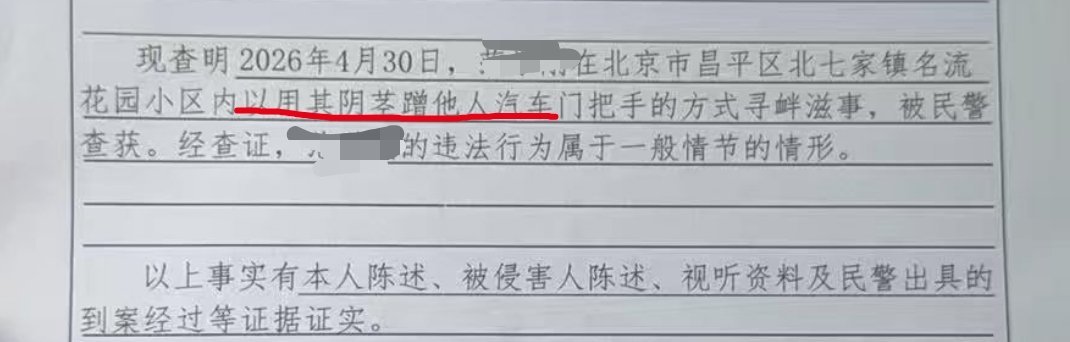 现查明 2026年4月30日，在北京市昌平区北七家镇名流
花园小区内以用其阴茎蹭他人汽车门把手的方式寻衅滋事，被民警
查获。经查证，的违法行为属于一般情节的情形。
以上事实有本人陈述、被侵害人陈述、视听资料及民警出具的
到案经过等证据证实。